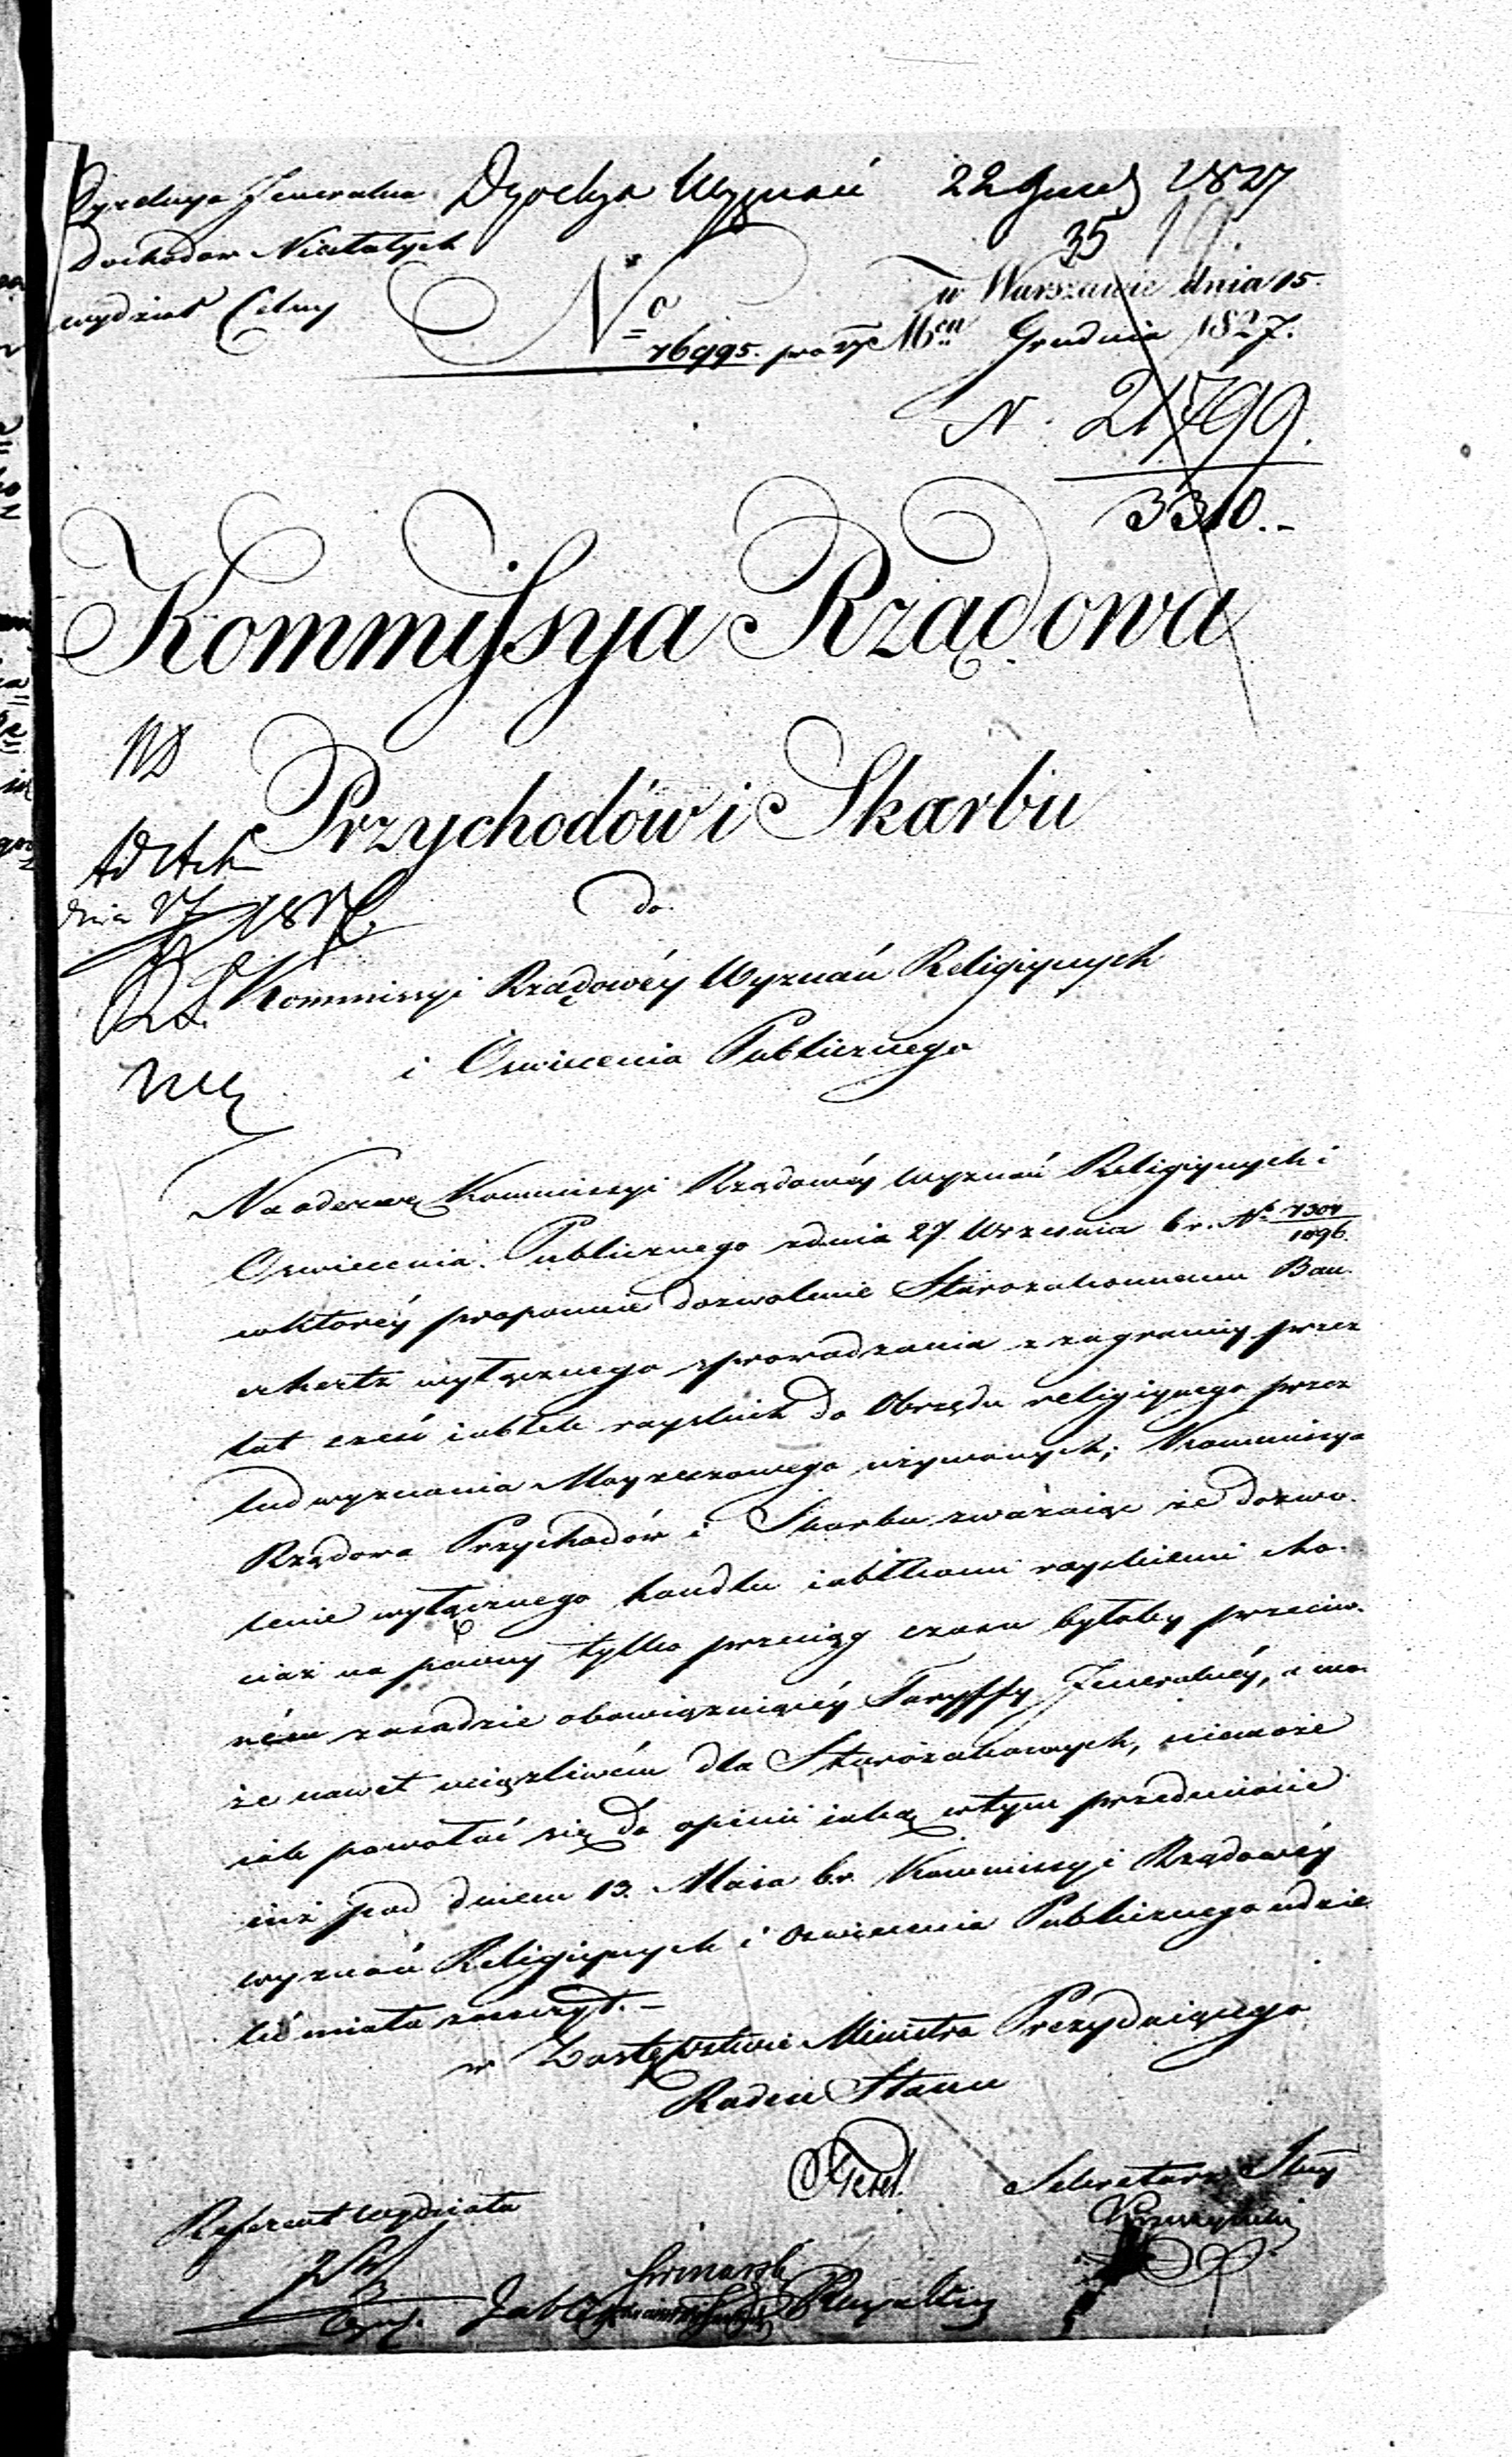 Dyrekcya Jeneralna
Dochodow Niestałych
wydział Celny
Dyrekcya Wyznań 22 Grud 1827
35
w Warszawie dnia 15.
Grudnia 1827.
No 76995.
N. 21799.
3310.-
Kommyssya Rządowa
Przychodów i Skarbu
Ad Acta
dnia
do
Kommissyi Rządowéy Wyznań Religiynych
i Oswiecenia Publicznego
Na odezwę Kommissyi Rządowéy Wyznań Religiynych i
Oswiecenia Publicznego z dnia 27 Wrzesnia b.r. No 7304/1096.
w któréy proponuie dozwolenie Starozakonnemu Bau-
erhertz wyłącznego sprowadzania z zagranicy przez
lat sześć iabłek rayskich do Obrzędu religiynego przez
lud wyznania Moyzeszowego używanych; Kommissya
Rządowa Przychodów i Skarbu zważaiąc że dozwo-
lenie wyłącznego handlu iabłkami rayskiemi cho-
ciaż na pewny tylko przeciąg czasu byłoby przeciw-
ném zasadzie obowiązuiącéy Taryffy Jeneralnéy, a mo-
że nawet uciążliwém dla Starozakonnych, niemoże
iak powołać się do opinii iaką w tym przedmiocie
iuż pod dniem 13. Maia b.r. Kommissyi Rządowéy
wyznań Religiynych i Oswiecenia Publicznego udzie-
lić miała zaszczyt.-
w Zastępstwie Ministra Prezyduiącego
Radca Stanu
Sekretarz Jlny
Referent wydziału